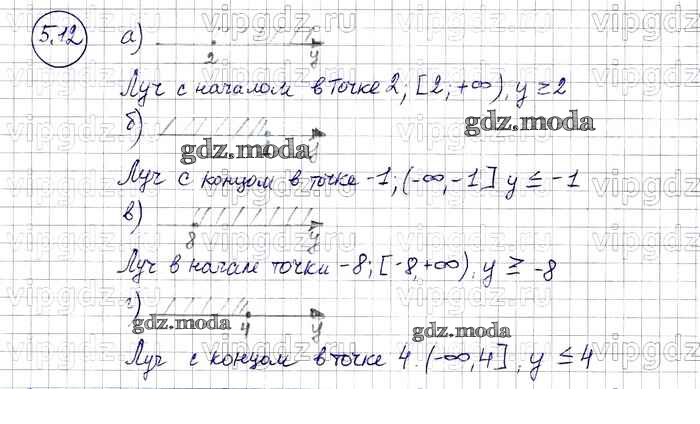 5.12 а)
2 y
Луч с началом в точке 2; [2; +∞), y ≥ 2
gdz.moda
б)
gdz.moda
Луч с концом в точке -1; (-∞, -1] y ≤ -1
в)
8 y
Луч в начале точки -8; [-8, +∞), y ≥ -8
г)
gdz.moda 4 y
gdz.moda
Луч с концом в точке 4. (-∞, 4], y ≤ 4
vipgdz.ru